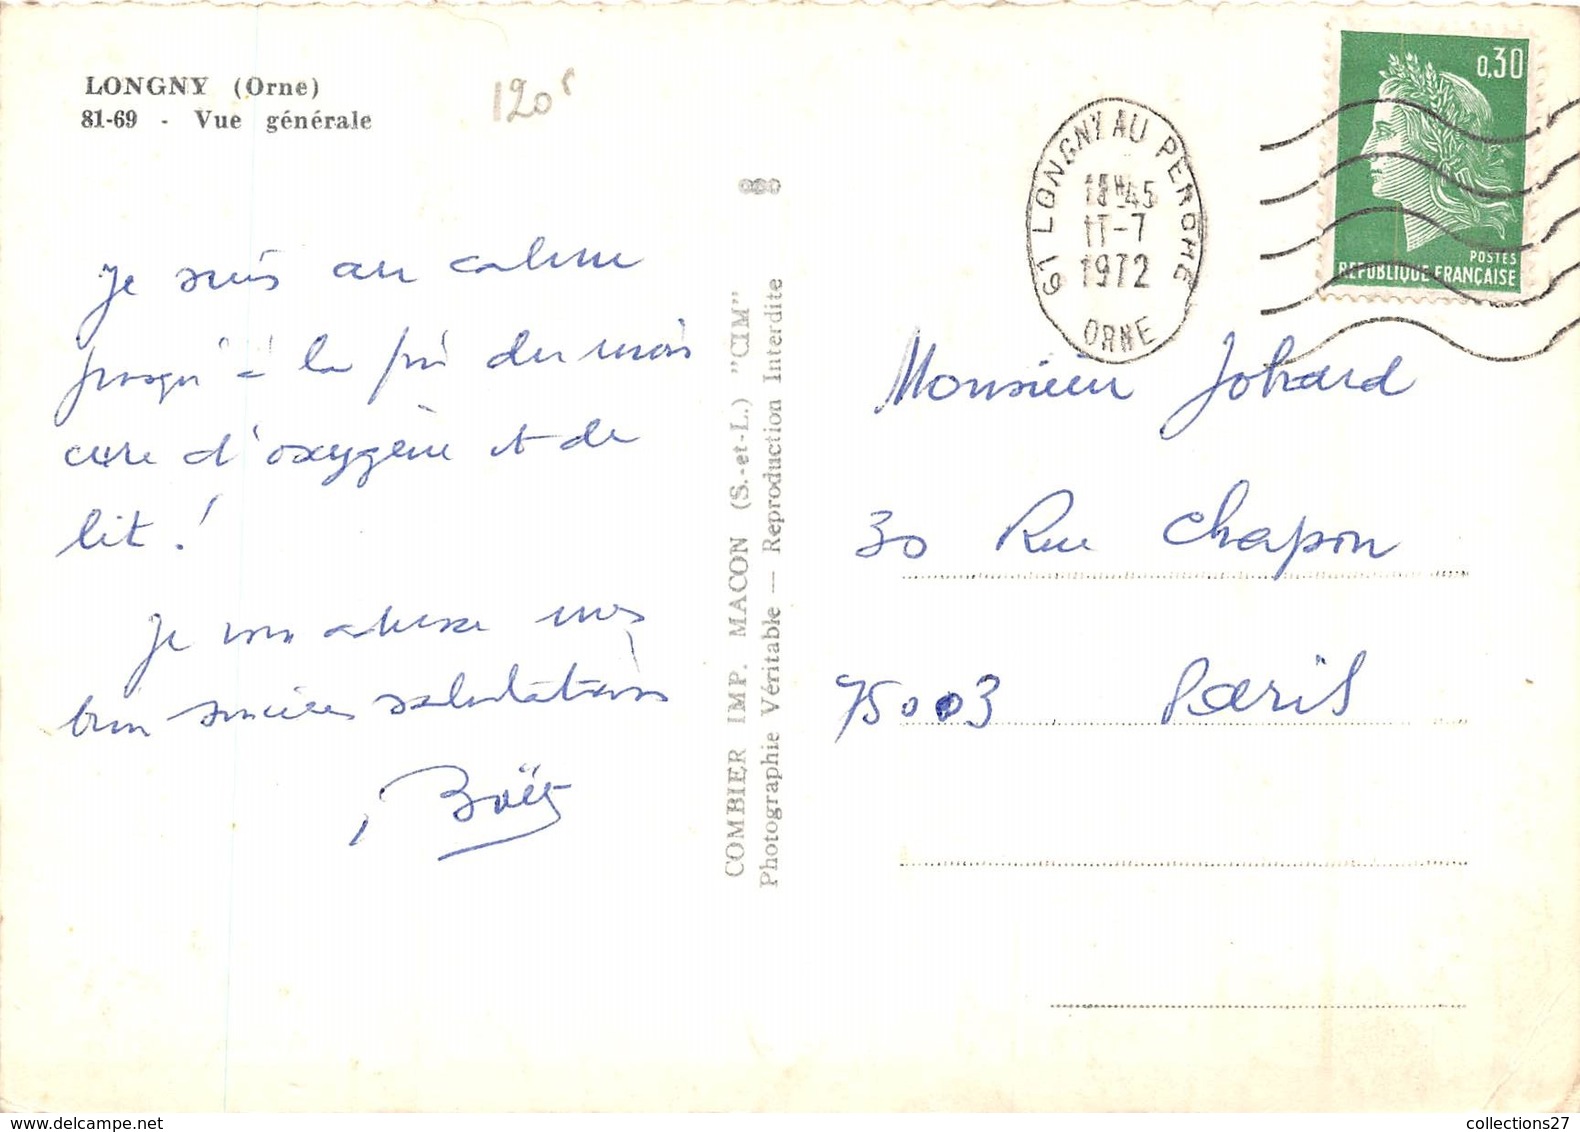 LONGNY (Orne)
81-69 - Vue générale
120F
Je suis au calme
jusqu'à la fin du mois
cure d'oxygène et de
lit !
Je vous adresse mes
bien sincères salutations
COMBIER IMP. MACON (S.-et-L.) "CIM"
Photographie Véritable — Reproduction Interdite
61 LONGNY AU PERCHE
15H45
11-7
1972
ORNE
0,30
POSTES
REPUBLIQUE FRANÇAISE
Monsieur Johard
30 Rue Chapon
75003 Paris
collections27